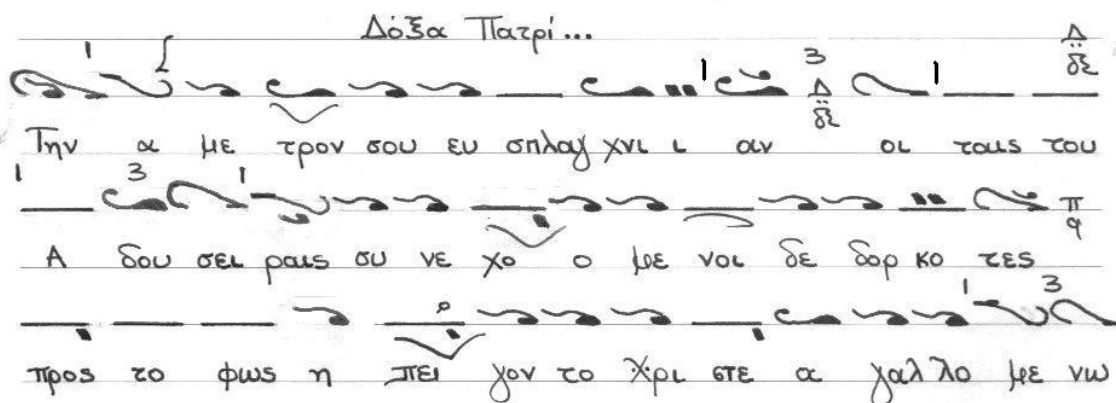 Δόξα Πατρί...
Την α με τρον σου ευ σπλαγ χνι ι αν οι ταις του
Α δου σει ραις συ νε χο ο με νοι δε δορ κο τες
προς το φως η πει γον το Χρι στε α γαλ λο με νω